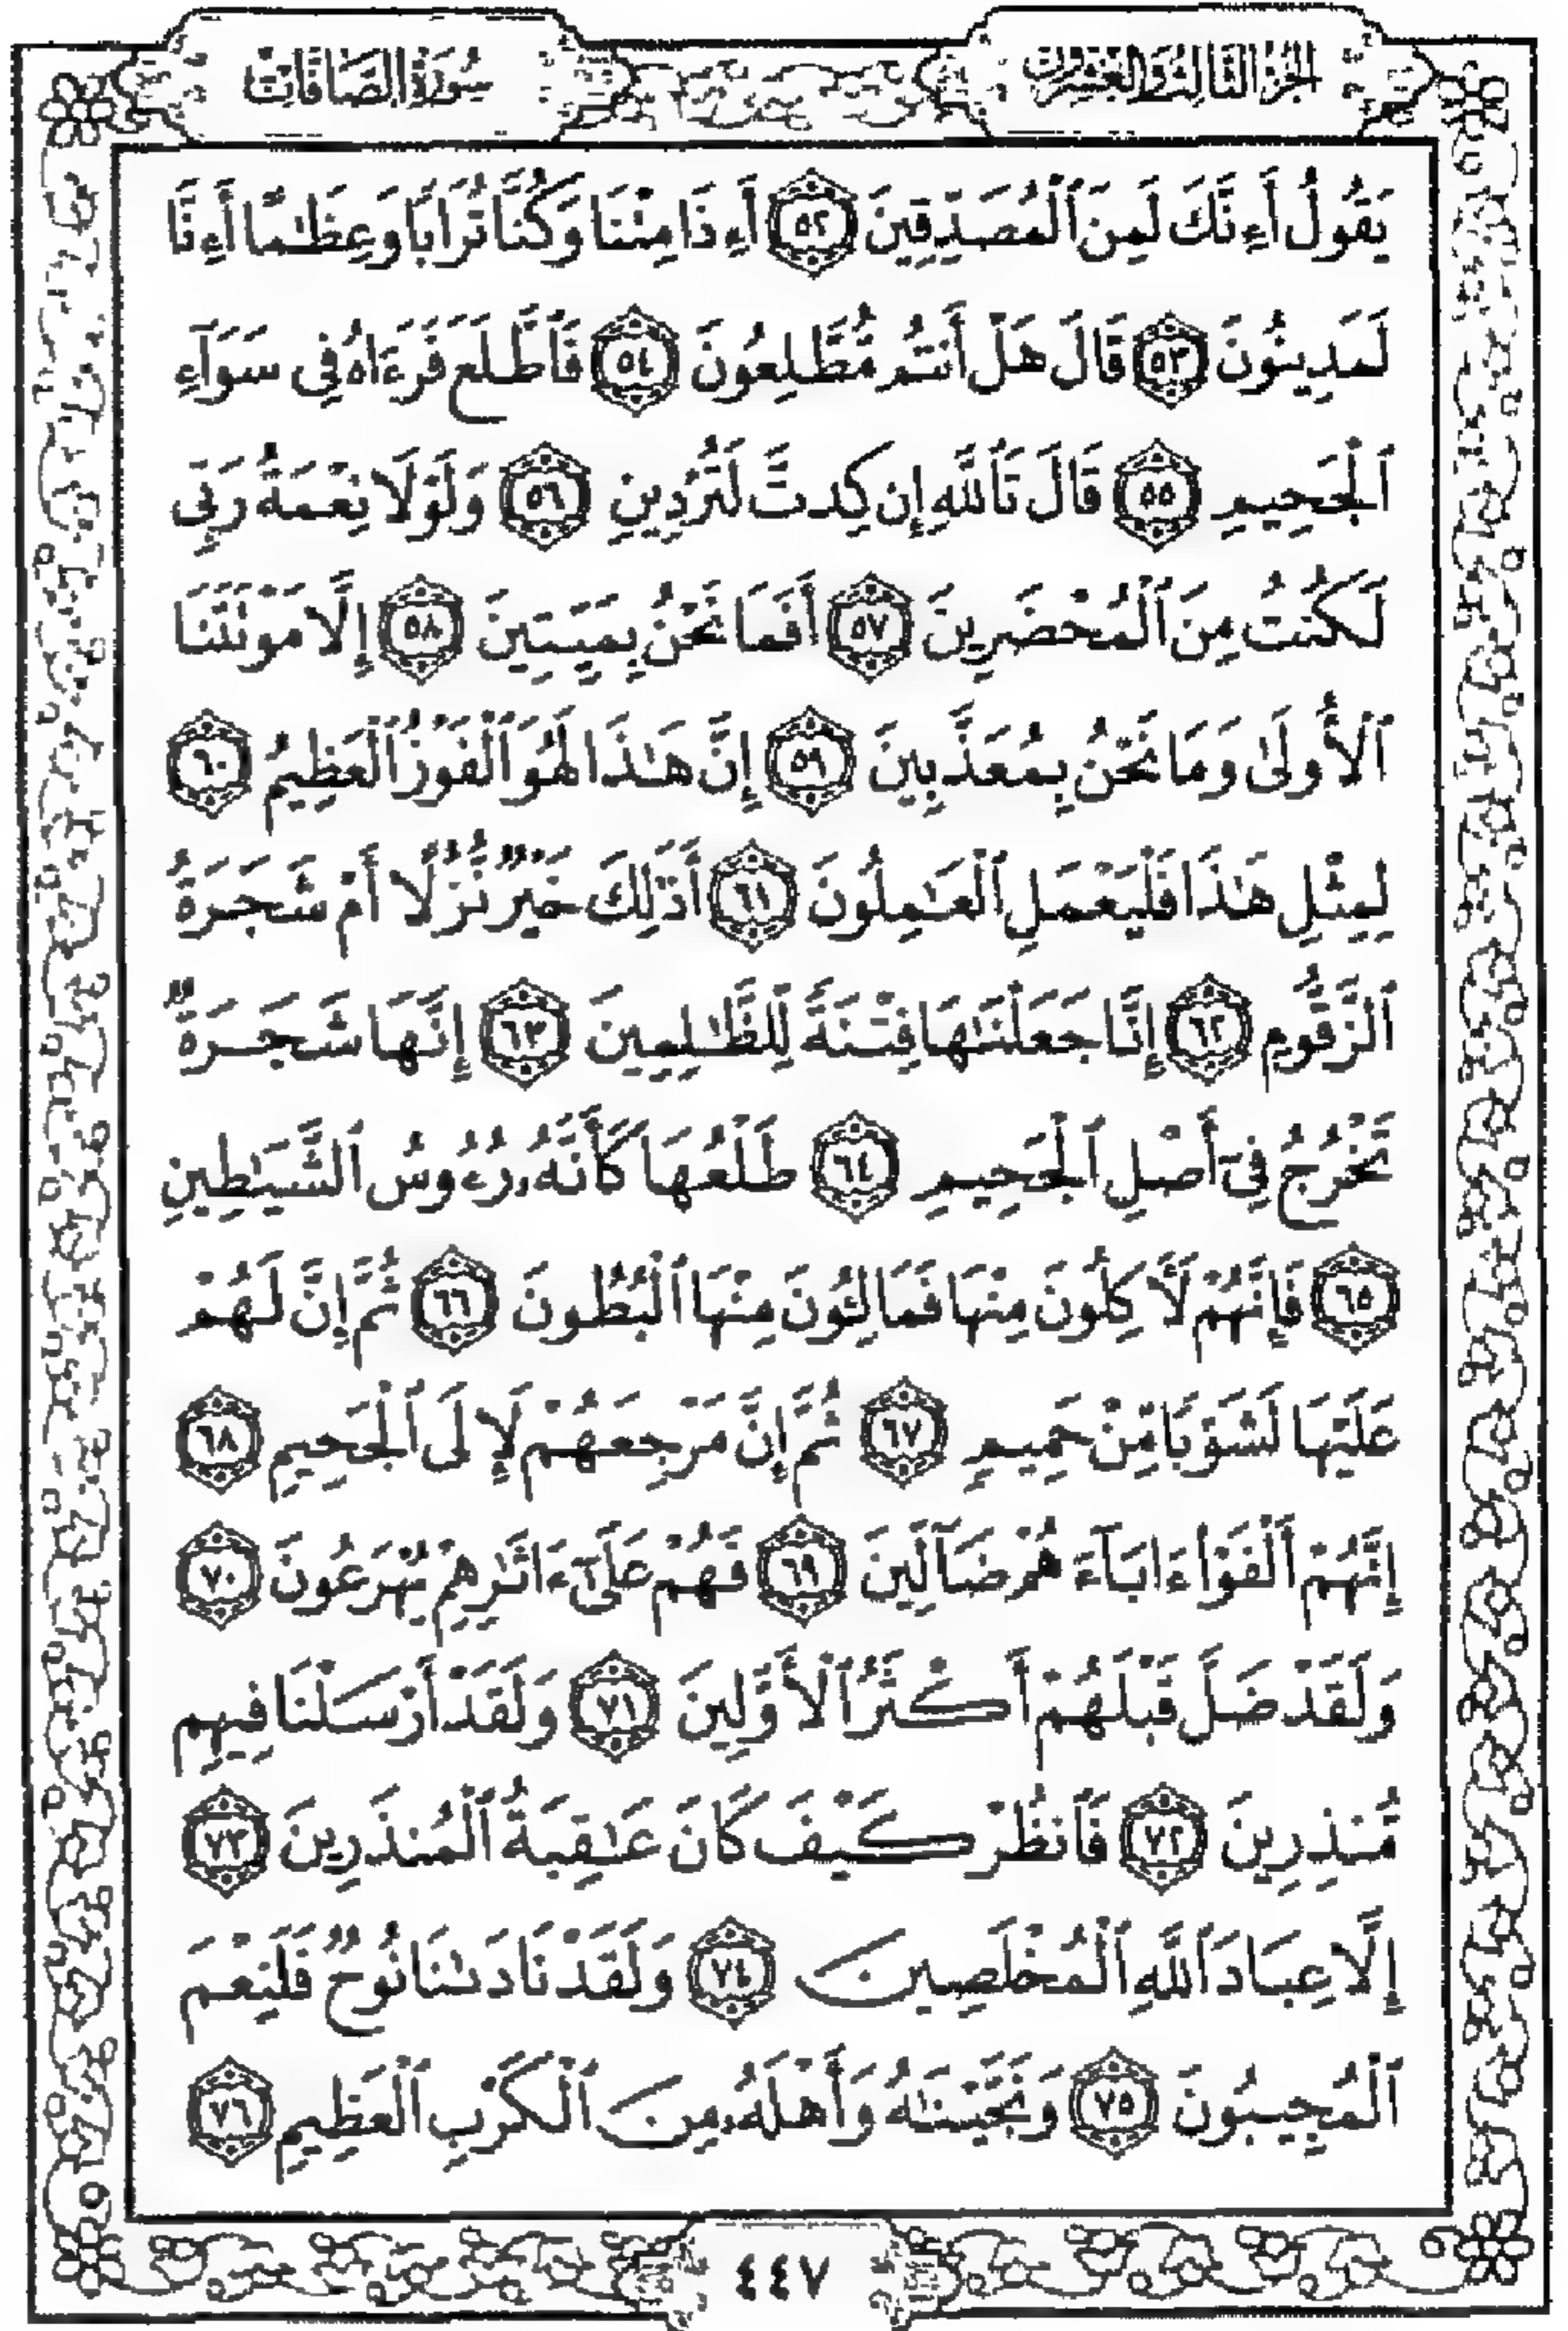 الجزء الثالث والعشرون
سورة الصافات
يَقُولُ أَءِنَّكَ لَمِنَ ٱلْمُصَدِّقِينَ ٥٢ أَءِذَا مِتْنَا وَكُنَّا تُرَابًا وَعِظَـٰمًا أَءِنَّا
لَمَدِينُونَ ٥٣ قَالَ هَلْ أَنتُم مُّطَّلِعُونَ ٥٤ فَٱطَّلَعَ فَرَءَاهُ فِى سَوَآءِ
ٱلْجَحِيمِ ٥٥ قَالَ تَٱللَّهِ إِن كِدتَّ لَتُرْدِينِ ٥٦ وَلَوْلَا نِعْمَةُ رَبِّى
لَكُنتُ مِنَ ٱلْمُحْضَرِينَ ٥٧ أَفَمَا نَحْنُ بِمَيِّتِينَ ٥٨ إِلَّا مَوْتَتَنَا
ٱلْأُولَىٰ وَمَا نَحْنُ بِمُعَذَّبِينَ ٥٩ إِنَّ هَـٰذَا لَهُوَ ٱلْفَوْزُ ٱلْعَظِيمُ ٦٠
لِمِثْلِ هَـٰذَا فَلْيَعْمَلِ ٱلْعَـٰمِلُونَ ٦١ أَذَٰلِكَ خَيْرٌ نُّزُلًا أَمْ شَجَرَةُ
ٱلزَّقُّومِ ٦٢ إِنَّا جَعَلْنَـٰهَا فِتْنَةً لِّلظَّـٰلِمِينَ ٦٣ إِنَّهَا شَجَرَةٌ
تَخْرُجُ فِىٓ أَصْلِ ٱلْجَحِيمِ ٦٤ طَلْعُهَا كَأَنَّهُۥ رُءُوسُ ٱلشَّيَـٰطِينِ
٦٥ فَإِنَّهُمْ لَـَٔاكِلُونَ مِنْهَا فَمَالِـُٔونَ مِنْهَا ٱلْبُطُونَ ٦٦ ثُمَّ إِنَّ لَهُمْ
عَلَيْهَا لَشَوْبًا مِّنْ حَمِيمٍ ٦٧ ثُمَّ إِنَّ مَرْجِعَهُمْ لَإِلَى ٱلْجَحِيمِ ٦٨
إِنَّهُمْ أَلْفَوْا۟ ءَابَآءَهُمْ ضَآلِّينَ ٦٩ فَهُمْ عَلَىٰٓ ءَاثَـٰرِهِمْ يُهْرَعُونَ ٧٠
وَلَقَدْ ضَلَّ قَبْلَهُمْ أَكْثَرُ ٱلْأَوَّلِينَ ٧١ وَلَقَدْ أَرْسَلْنَا فِيهِم
مُّنذِرِينَ ٧٢ فَٱنظُرْ كَيْفَ كَانَ عَـٰقِبَةُ ٱلْمُنذَرِينَ ٧٣
إِلَّا عِبَادَ ٱللَّهِ ٱلْمُخْلَصِينَ ٧٤ وَلَقَدْ نَادَىٰنَا نُوحٌ فَلَنِعْمَ
ٱلْمُجِيبُونَ ٧٥ وَنَجَّيْنَـٰهُ وَأَهْلَهُۥ مِنَ ٱلْكَرْبِ ٱلْعَظِيمِ ٧٦
٤٤٧